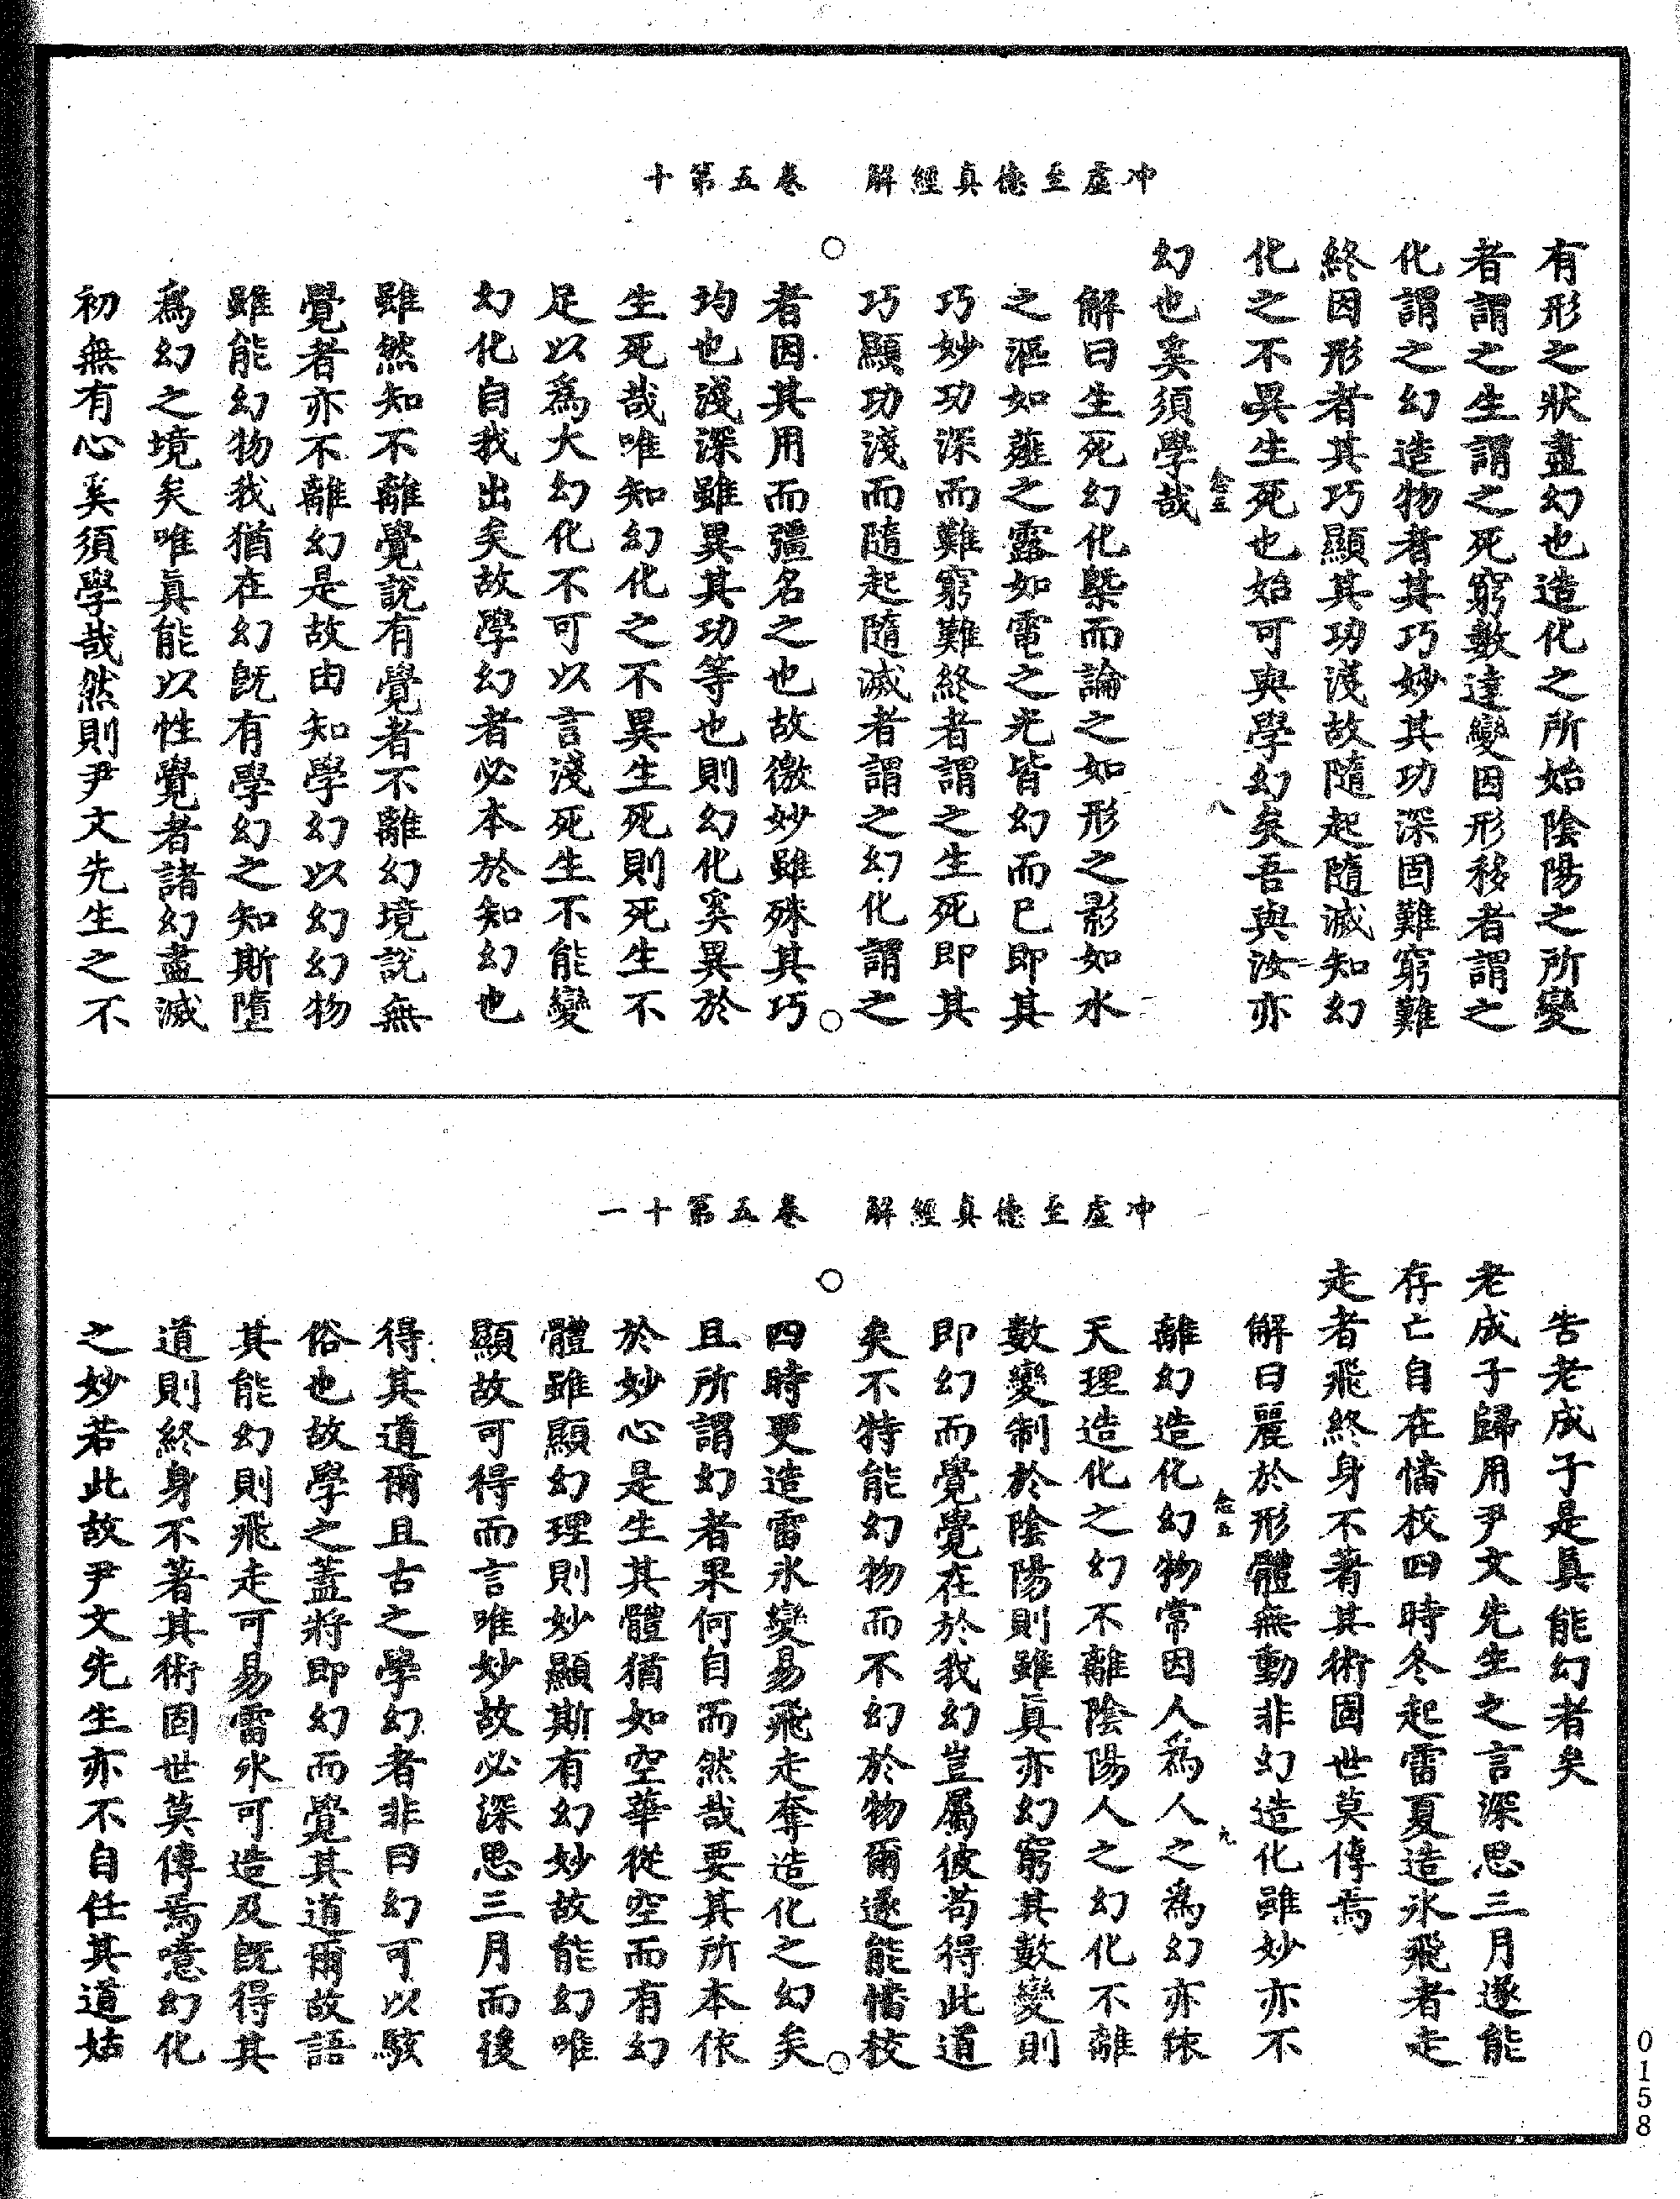 冲虛至德真經解　卷五第十
有形之狀盡幻也造化之所始陰陽之所變
者謂之生謂之死窮數達變因形移者謂之
化謂之幻造物者其巧妙其功深固難窮難
終因形者其巧顯其功淺故隨起隨滅知幻
化之不異生死也始可與學幻矣吾與汝亦
念五　八
幻也奚須學哉
解曰生死幻化槩而論之如形之影如水
之漚如薤之露如電之光皆幻而已即其
巧妙功深而難窮難終者謂之生死即其
巧顯功淺而隨起隨滅者謂之幻化謂之
者因其用而彊名之也故微妙雖殊其巧
均也淺深雖異其功等也則幻化奚異於
生死哉唯知幻化之不異生死則死生不
足以爲大幻化不可以言淺死生不能變
幻化自我出矣故學幻者必本於知幻也
雖然知不離覺說有覺者不離幻境說無
覺者亦不離幻是故由知學幻以幻幻物
雖能幻物我猶在幻旣有學幻之知斯墮
爲幻之境矣唯眞能以性覺者諸幻盡滅
初無有心奚須學哉然則尹文先生之不
冲虛至德真經解　卷五第十一
告老成子是眞能幻者矣
老成子歸用尹文先生之言深思三月遂能
存亡自在憣校四時冬起雷夏造氷飛者走
走者飛終身不著其術固世莫傳焉
解曰麗於形體無動非幻造化雖妙亦不
念五　九
離幻造化幻物常因人爲人之爲幻亦依
天理造化之幻不離陰陽人之幻化不離
數變制於陰陽則雖眞亦幻窮其數變則
即幻而覺覺在於我幻豈屬彼苟得此道
矣不特能幻物而不幻於物爾遂能憣校
四時更造雷氷變易飛走奪造化之幻矣
且所謂幻者果何自而然哉要其所本依
於妙心是生其體猶如空華從空而有幻
體雖顯幻理則妙顯斯有幻妙故能幻唯
顯故可得而言唯妙故必深思三月而後
得其道爾且古之學幻者非曰幻可以駭
俗也故學之蓋將即幻而覺其道爾故語
其能幻則飛走可易雷氷可造及旣得其
道則終身不著其術固世莫傳焉噫幻化
之妙若此故尹文先生亦不自任其道姑
0158